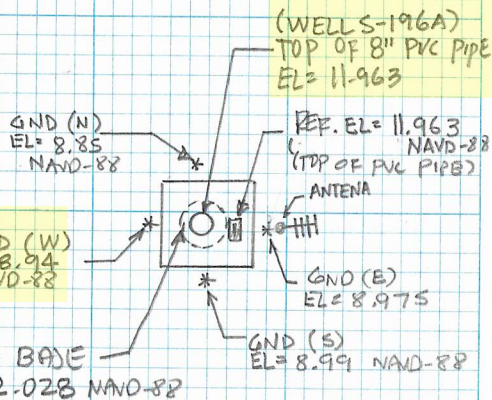 (WELL S-196A)
TOP OF 8" PVC PIPE
EL= 11.963
GND (N)
EL= 8.85
NAVD-88
REF. EL= 11.963
NAVD-88
(TOP OF PVC PIPE)
ANTENA
D (W)
8.94
VD-88
GND (E)
EL= 8.975
GND (S)
EL= 8.99 NAVD-88
BASE
2.028 NAVD-88